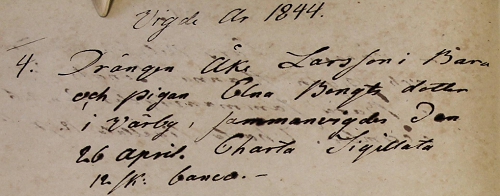 Vigde År 1844.
4. Drängen Åke Larsson i Bara
och pigan Elna Bengts dotter
i Värby, sammanvigdes Den
26 April. Charta Sigillata
12 sk: banco. -